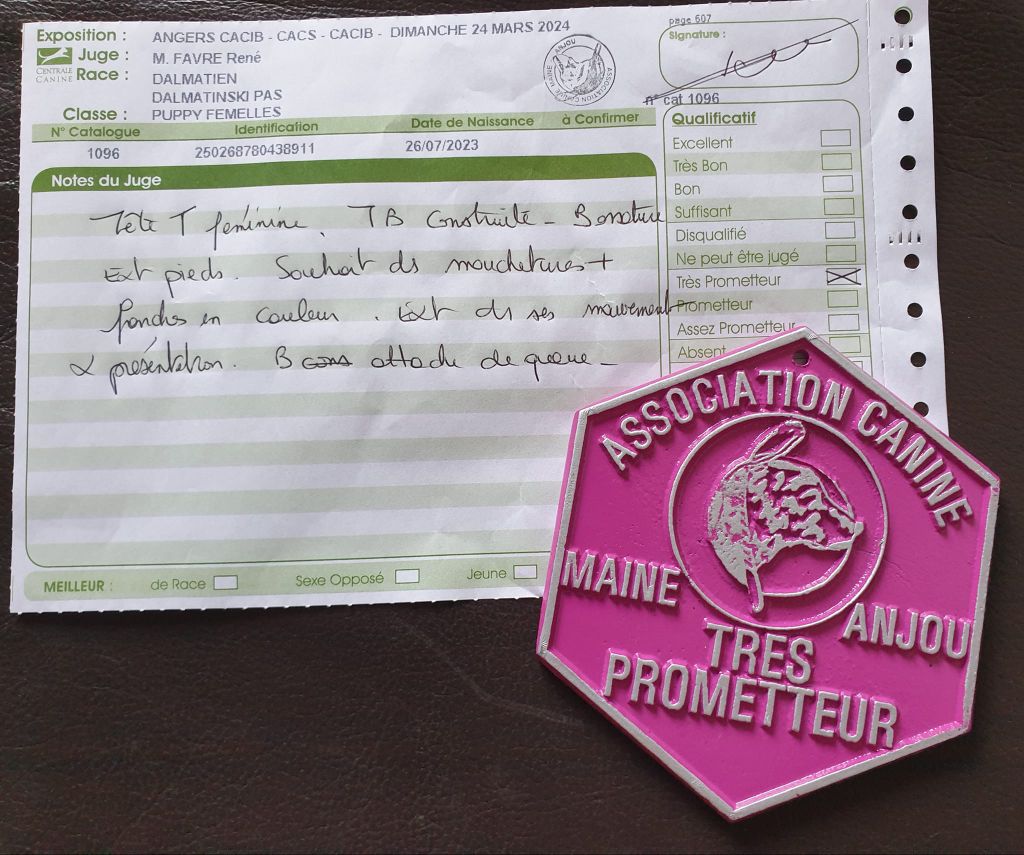 Exposition : ANGERS CACIB - CACS - CACIB - DIMANCHE 24 MARS 2024
CENTRALE CANINE
Juge : M. FAVRE René
Race : DALMATIEN
DALMATINSKI PAS
Classe : PUPPY FEMELLES
ANJOU
page 607
Signature :
n° cat 1096
N° Catalogue Identification Date de Naissance à Confirmer
1096 250268780438911 26/07/2023
Notes du Juge
Tête T féminine. TB Construite - B ossature
Ext pieds. Souhait ds mouchetures +
foncées en couleur. Ext ds ses mouvement
& présentation. B attache de queue -
Qualificatif
Excellent
Très Bon
Bon
Suffisant
Disqualifié
Ne peut être jugé
Très Prometteur
Prometteur
Assez Prometteur
Absent
MEILLEUR : de Race Sexe Opposé Jeune
ASSOCIATION CANINE
MAINE ANJOU
TRES
PROMETTEUR